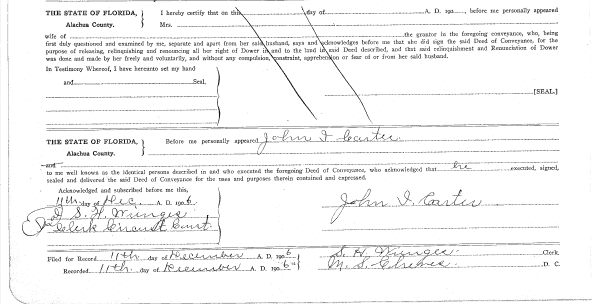 THE STATE OF FLORIDA, I hereby certify that on this day of A. D. 190 , before me personally appeared
Alachua County. Mrs.
wife of the grantor in the foregoing conveyance, who, being
first duly questioned and examined by me, separate and apart from her said husband, says and acknowledges before me that she did sign the said Deed of Conveyance, for the
purpose of releasing, relinquishing and renouncing all her right of Dower in and to the land in said Deed described, and that said relinquishment and Renunciation of Dower
was done and made by her freely and voluntarily, and without any compulsion, constraint, apprehension or fear of or from her said husband.
In Testimony Whereof, I have hereunto set my hand
and Seal,
[SEAL.]
THE STATE OF FLORIDA, Before me personally appeared John I Carter
Alachua County.
and
to me well known as the identical persons described in and who executed the foregoing Deed of Conveyance, who acknowledged that he executed, signed,
sealed and delivered the said Deed of Conveyance for the uses and purposes therein contained and expressed.
Acknowledged and subscribed before me this,
11th day of Dec. A. D. 1906 John I. Carter
S. H. Wienges
Clerk Circuit Court.
Filed for Record 11th day of December A. D. 1906 S. H. Wienges Clerk.
Recorded 11th day of December A. D. 1906 M. S. Cheves D. C.